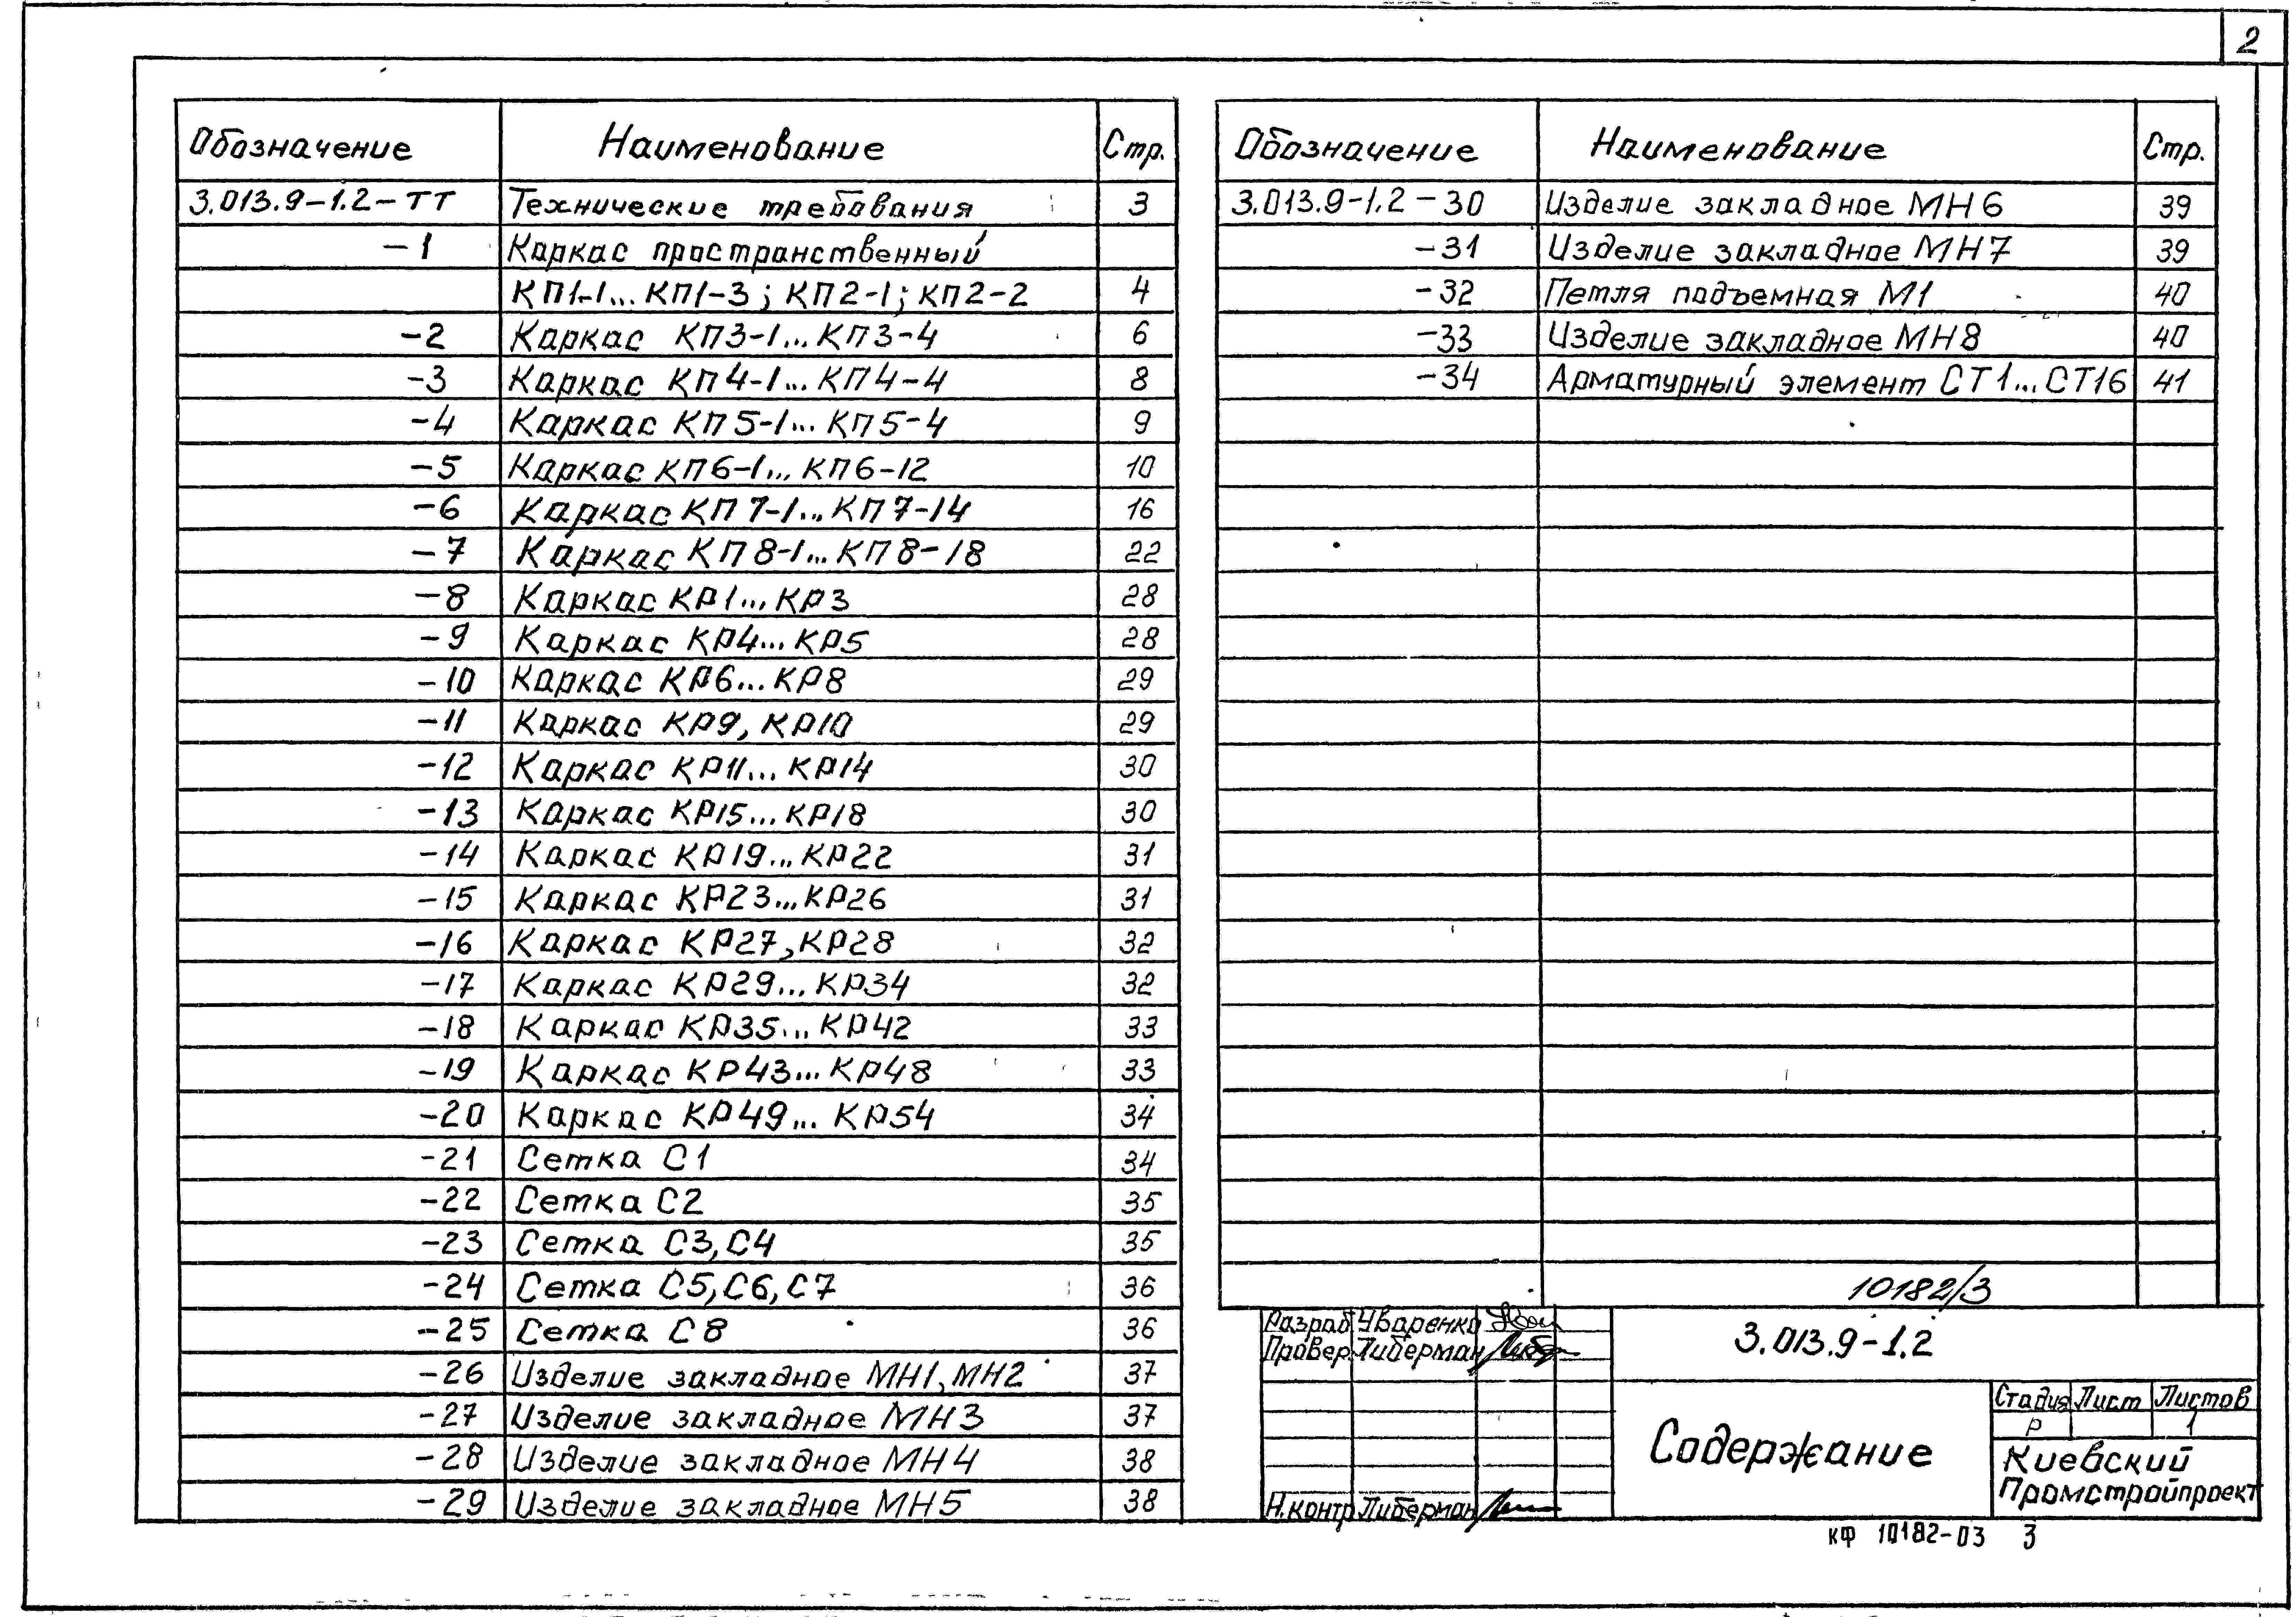 2
Обозначение Наименование Стр.
3.013.9-1.2-ТТ Технические требования 3
-1 Каркас пространственный
КП1-1...КП1-3; КП2-1; КП2-2 4
-2 Каркас КП3-1...КП3-4 6
-3 Каркас КП4-1...КП4-4 8
-4 Каркас КП5-1...КП5-4 9
-5 Каркас КП6-1...КП6-12 10
-6 Каркас КП7-1...КП7-14 16
-7 Каркас КП8-1...КП8-18 22
-8 Каркас КР1...КР3 28
-9 Каркас КР4...КР5 28
-10 Каркас КР6...КР8 29
-11 Каркас КР9, КР10 29
-12 Каркас КР11...КР14 30
-13 Каркас КР15...КР18 30
-14 Каркас КР19...КР22 31
-15 Каркас КР23...КР26 31
-16 Каркас КР27, КР28 32
-17 Каркас КР29...КР34 32
-18 Каркас КР35...КР42 33
-19 Каркас КР43...КР48 33
-20 Каркас КР49...КР54 34
-21 Сетка С1 34
-22 Сетка С2 35
-23 Сетка С3, С4 35
-24 Сетка С5, С6, С7 36
-25 Сетка С8 36
-26 Изделие закладное МН1, МН2 37
-27 Изделие закладное МН3 37
-28 Изделие закладное МН4 38
-29 Изделие закладное МН5 38
Обозначение Наименование Стр.
3.013.9-1.2-30 Изделие закладное МН6 39
-31 Изделие закладное МН7 39
-32 Петля подъемная М1 40
-33 Изделие закладное МН8 40
-34 Арматурный элемент СТ1...СТ16 41
10182/3
Разраб Уваренко
Провер. Либерман
Н.контр Либерман
3.013.9-1.2
Содержание
Стадия Лист Листов
Р 1
Киевский
Промстройпроект
КФ 10182-03 3